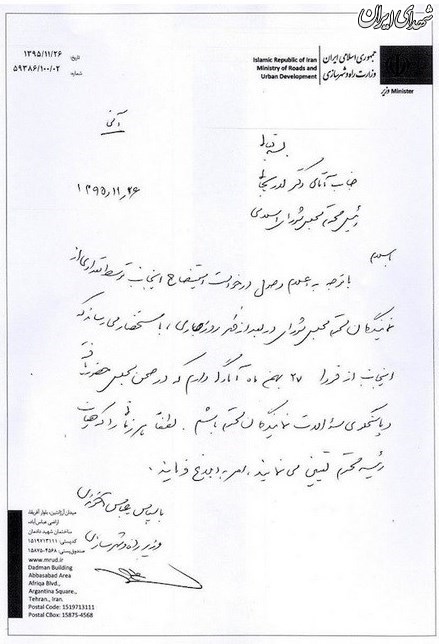 شهدای ایران
جمهوری اسلامی ایران
وزارت راه و شهرسازی
Islamic Republic of Iran
Ministry of Roads and
Urban Development
وزیر Minister
تاریخ: ۱۳۹۵/۱۱/۲۶
شماره: ۵۹۳۸۶/۱۰۰/۰۲
آنی
بسمه تعالی
جناب آقای دکتر لاریجانی
۱۳۹۵٫۱۱٫۲۶
رئیس محترم مجلس شورای اسلامی
با سلام
با توجه به اعلام وصول درخواست استیضاح اینجانب توسط تعدادی از
نمایندگان محترم مجلس شورای در بعدازظهر روز جاری، باستحضار می رساند که
اینجانب از فردا ۲۷ بهمن ماه آمادگی دارم که در صحن مجلس حضور یافته
و پاسخگوی سؤالات نمایندگان محترم باشم. لطفاً هر زمان را که هیات
رئیسه محترم تعیین می نمایند، امر به ابلاغ فرمایند.
با سپاس عباس آخوندی
وزیر راه و شهرسازی
میدان آرژانتین، بلوار آفریقا
اراضی عباس‌آباد،
ساختمان شهید دادمان
کدپستی: ۱۵۱۹۷۱۳۱۱۱
صندوق‌پستی: ۴۵۶۸-۱۵۸۷۵
www.mrud.ir
Dadman Building
Abbasabad Area
Afriqa Blvd.,
Argantina Square.,
Tehran., Iran.
Postal Code: 1519713111
Postal CBox: 15875-4568